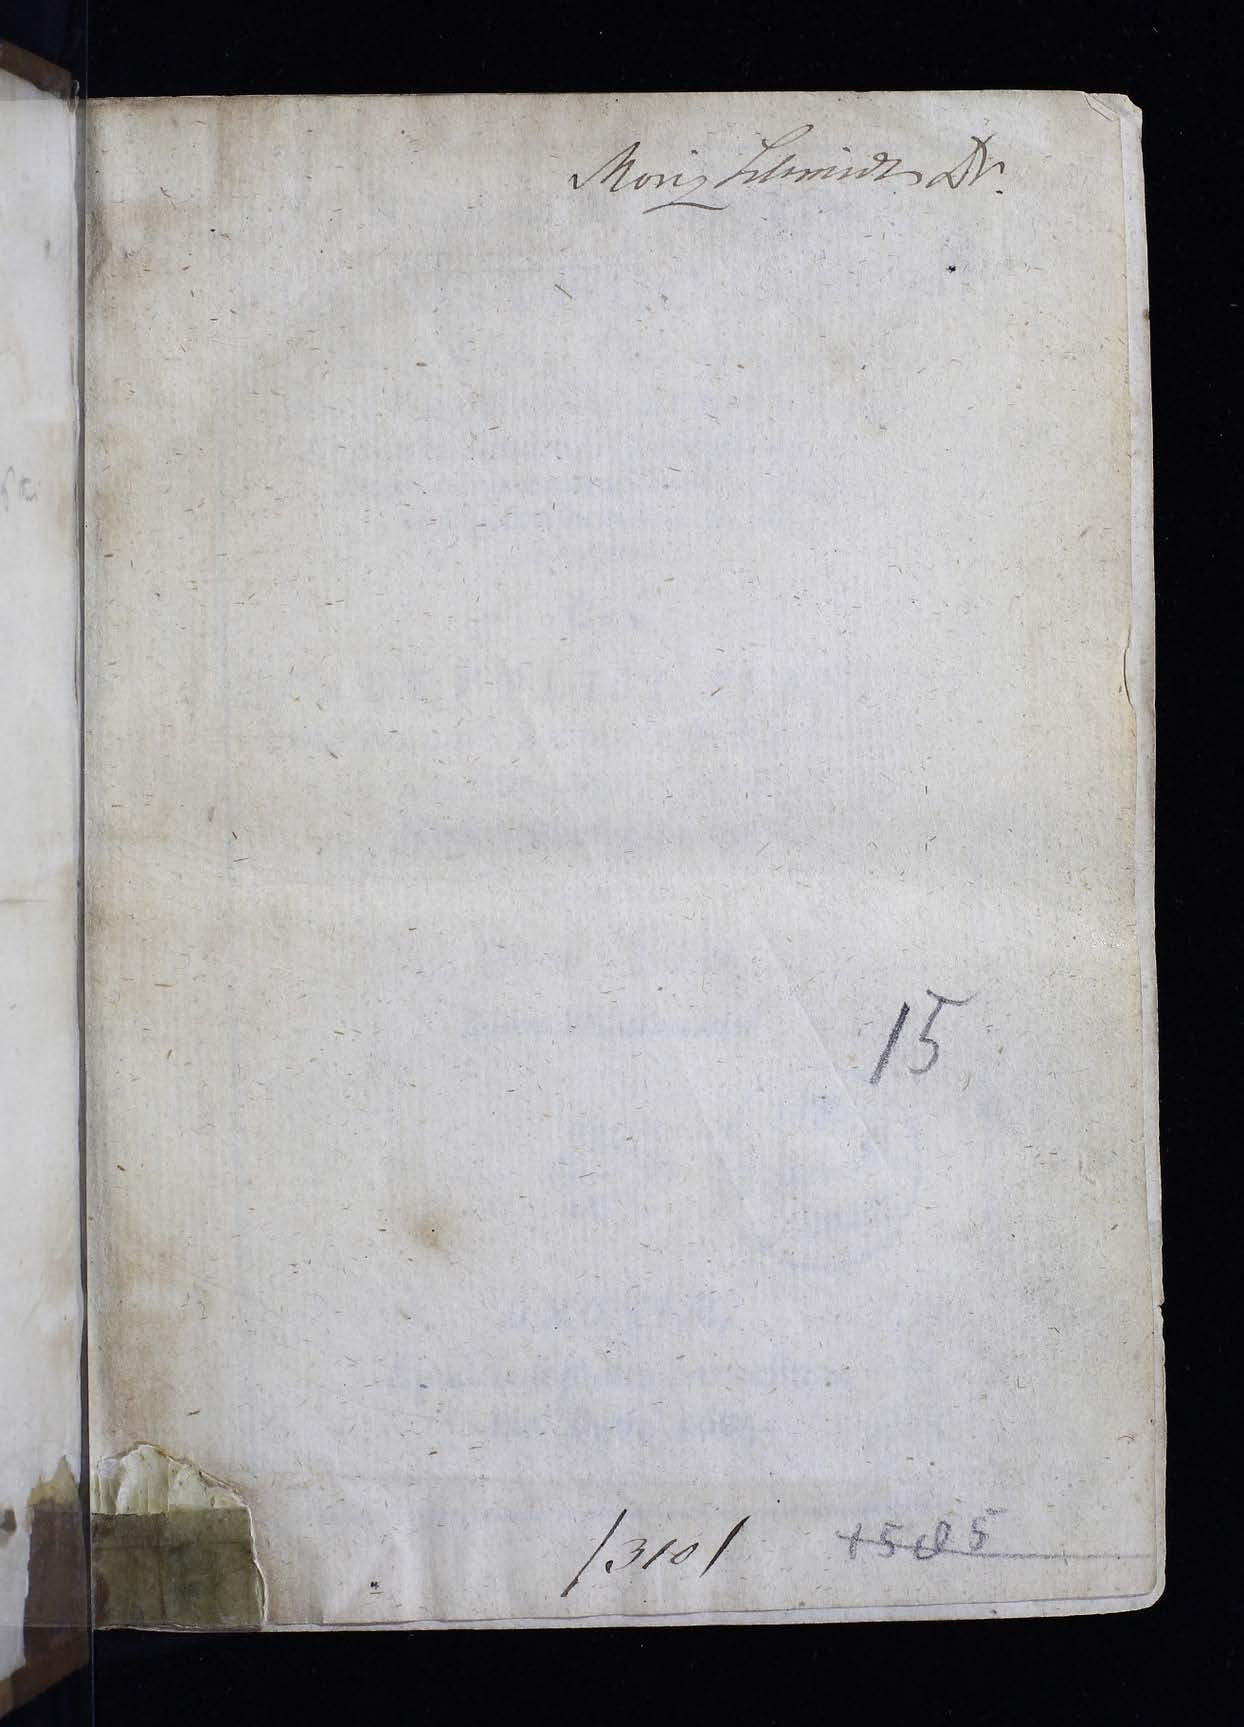 Moriz Schmidt Dr.
15
/310/
1585